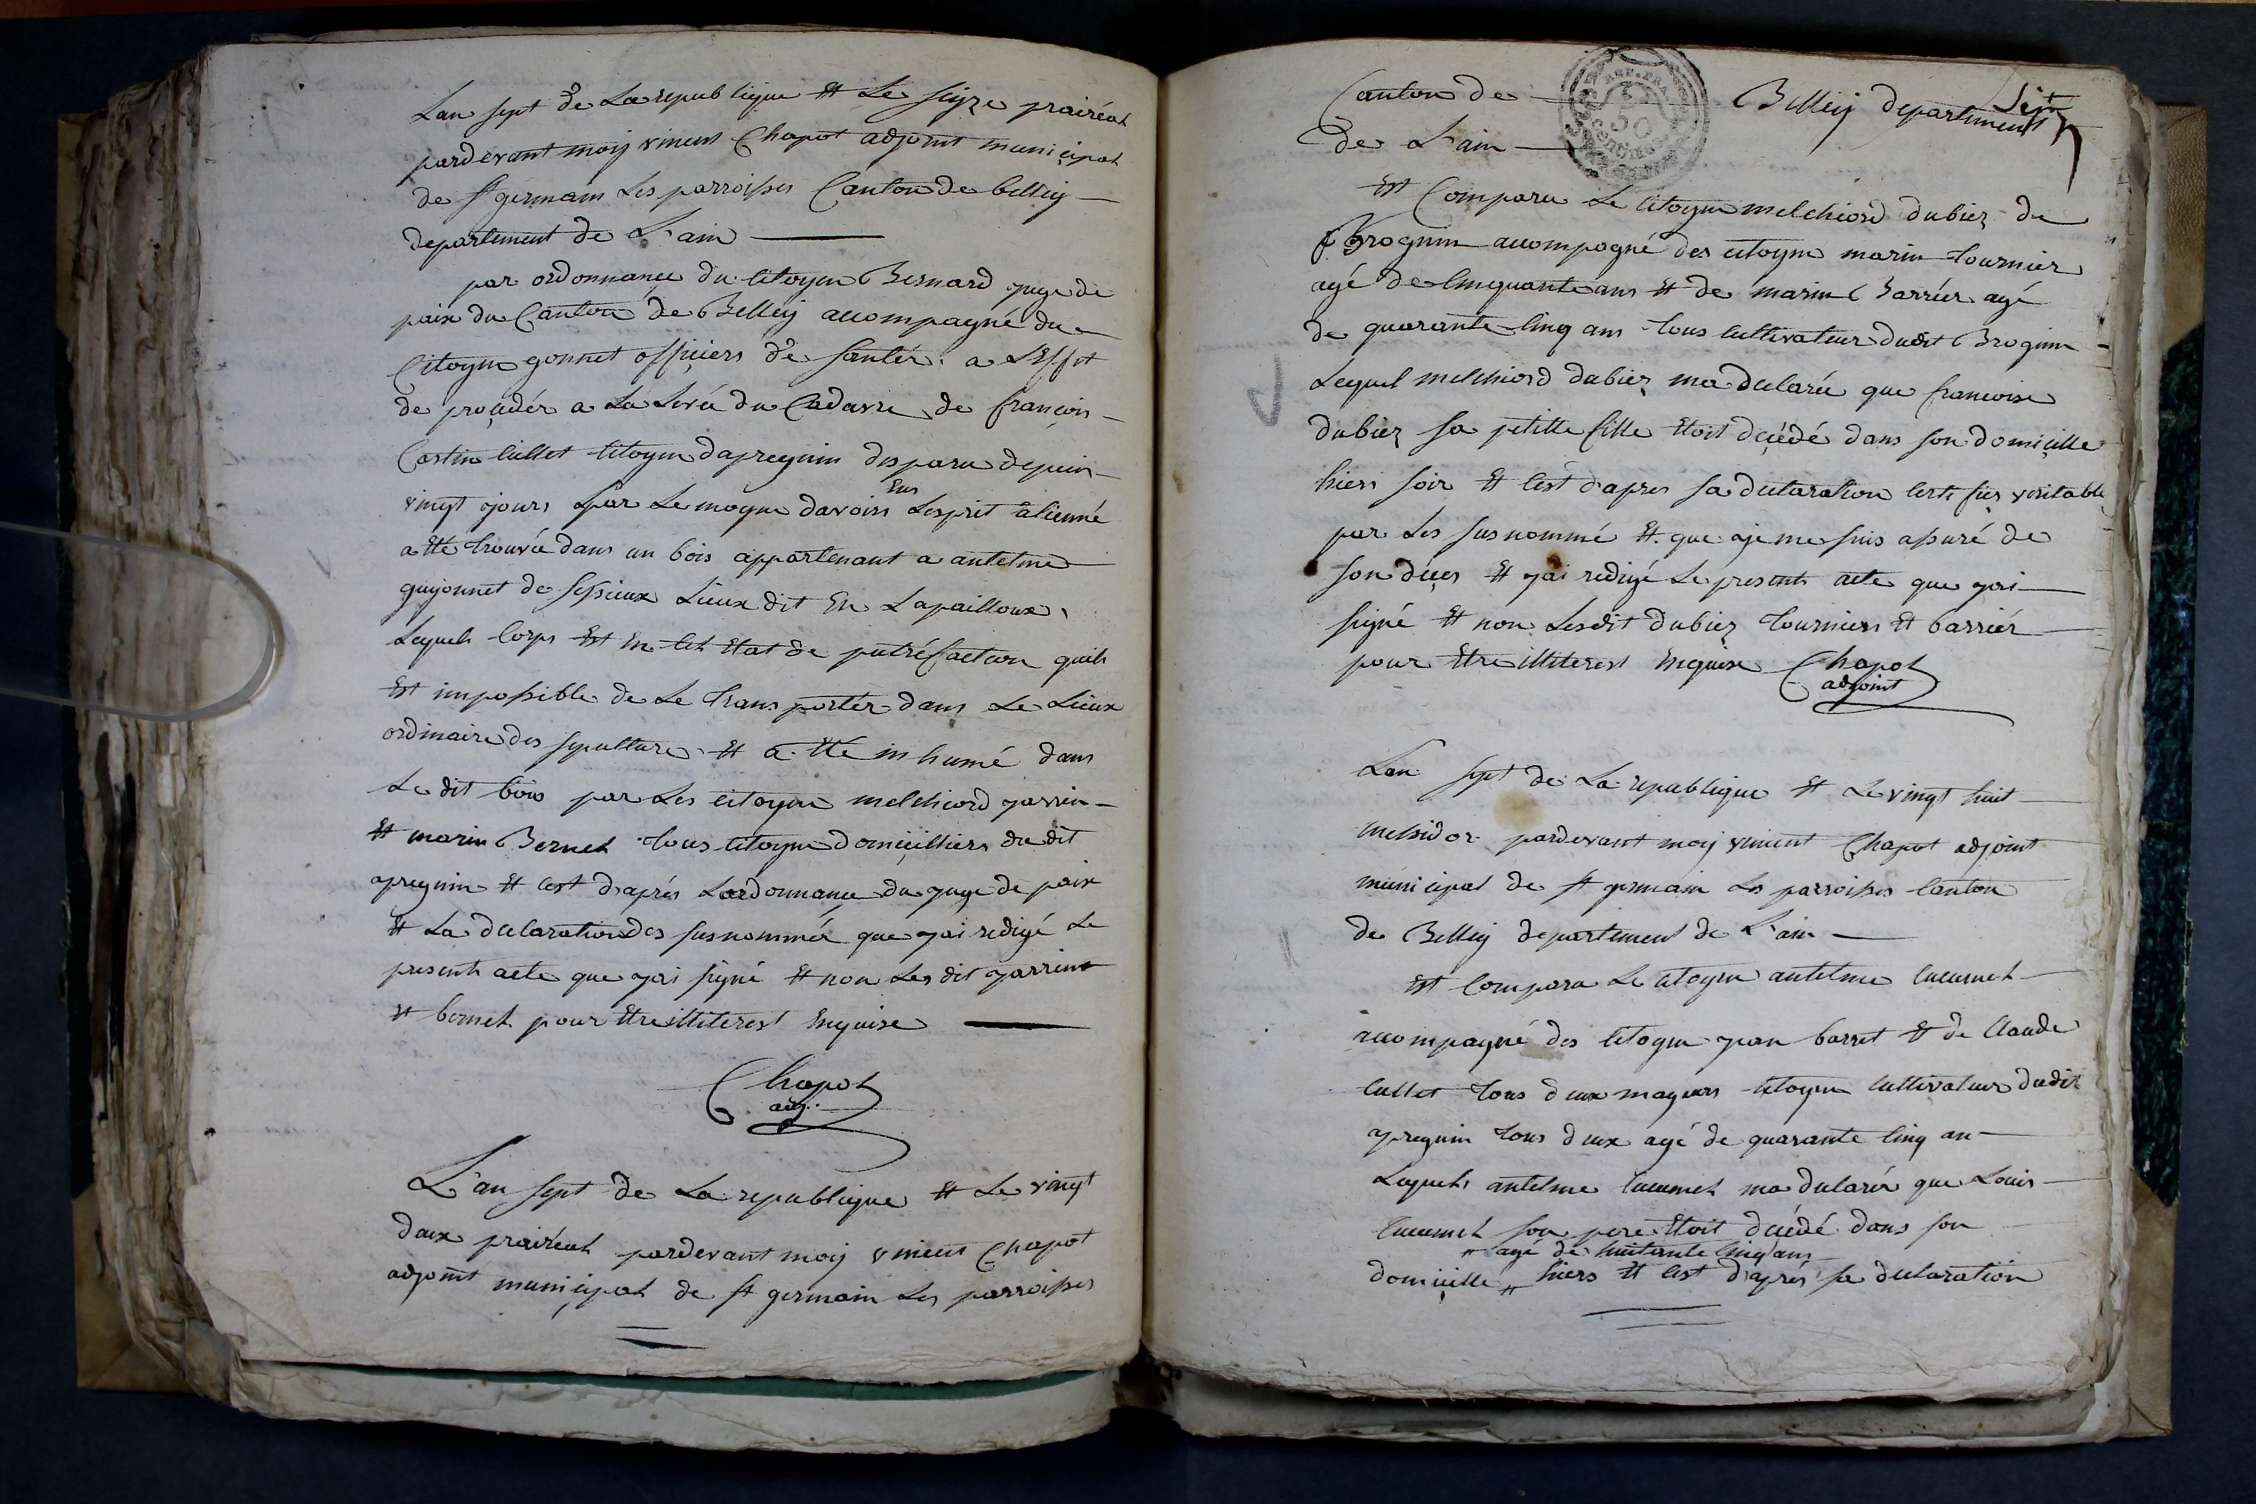 Lan sept de La republique Et Le seize prairéal
pardevant moy vincent Chapot adjoint municipal
de st germain Les parroisses Canton de belleÿ
departement de L'ain
par ordonnance du citoyen Bernard juge de
paix du Canton de Belleÿ accompagné du
Citoyen gonnet officiers de santér a L'Effet
de procédér a La Levée du Cadavre de françois
Castin cullet citoyen dapregnin disparu depuis
vingt jours par Le moyen davoirs Eus Lesprit alienné
a Eté trouvée dans un bois appartenant a antelme
guÿonnet de sessieux Lieux dit En Lapailloux,
Lequels Corps Est En tel Etat de putréfaction quils
Est impossible de Le transportér dans Le Lieux
ordinaire des sepulture Et a Eté inhumé dans
Le dit bois par Les citoyen melchiord jarrin
Et marin Bernet tous citoyen domicilliers du dit
apregnin Et cest d'aprés Lordonnance du juge de paix
Et La declaration des susnommér que jai redigé Le
presents acte que jai signé Et non Les dit jarrins
et bernet pour Etre illiterest Enquise
Chapot
adj.
L'an sept de La republique Et Le vingt
deux prairéal pardevant moÿ vincent Chapot
adjoint municipal de st germain Les parroisses
Sept
Canton de Belleÿ departement
de L'ain
REP. FRA.
50
CENTIMES
Est Comparu Le Citoyen melchiord dubiez de
Brognin accompagné des citoyen marin tournier
agé de Cinquante ans Et de marin Barriér agé
de quarante cinq ans tous cultivateur dudit Brognin
Lequel melchiord dubiez ma declarée que francoise
dubiez sa petitte fille Etoit décédé dans son domicille
hiers soir Et cest d'apres sa declaration certifiés veritable
par Les susnommé Et que je me suis assuré de
son décès Et jai redigé Le presents acte que jai
signé Et non Lesdit dubiez tourniers Et barriér
pour Etre illiterest Enquise Chapot
adjoint
Lan sept de La republique Et Le vingt huit
messidor pardevant moÿ vincent Chapot adjoint
municipal de st germain Les parroisses Canton
de Belleÿ departement de L'ain
Est Compara Le citoyen antelme Cucurnet
accompagné des citoyen jean barret Et de Claude
Cullet tous deux majeurs citoyen cultivateur dudit
apregnin tous deux agé de quarante Cinq an
Lequels antelme Cucurnet ma declarée que Louis
Cucurnet son pere Etoit décédé dans son
" agé de huitante cinq ans
domicille " hiers Et cest d'aprés sa declaration